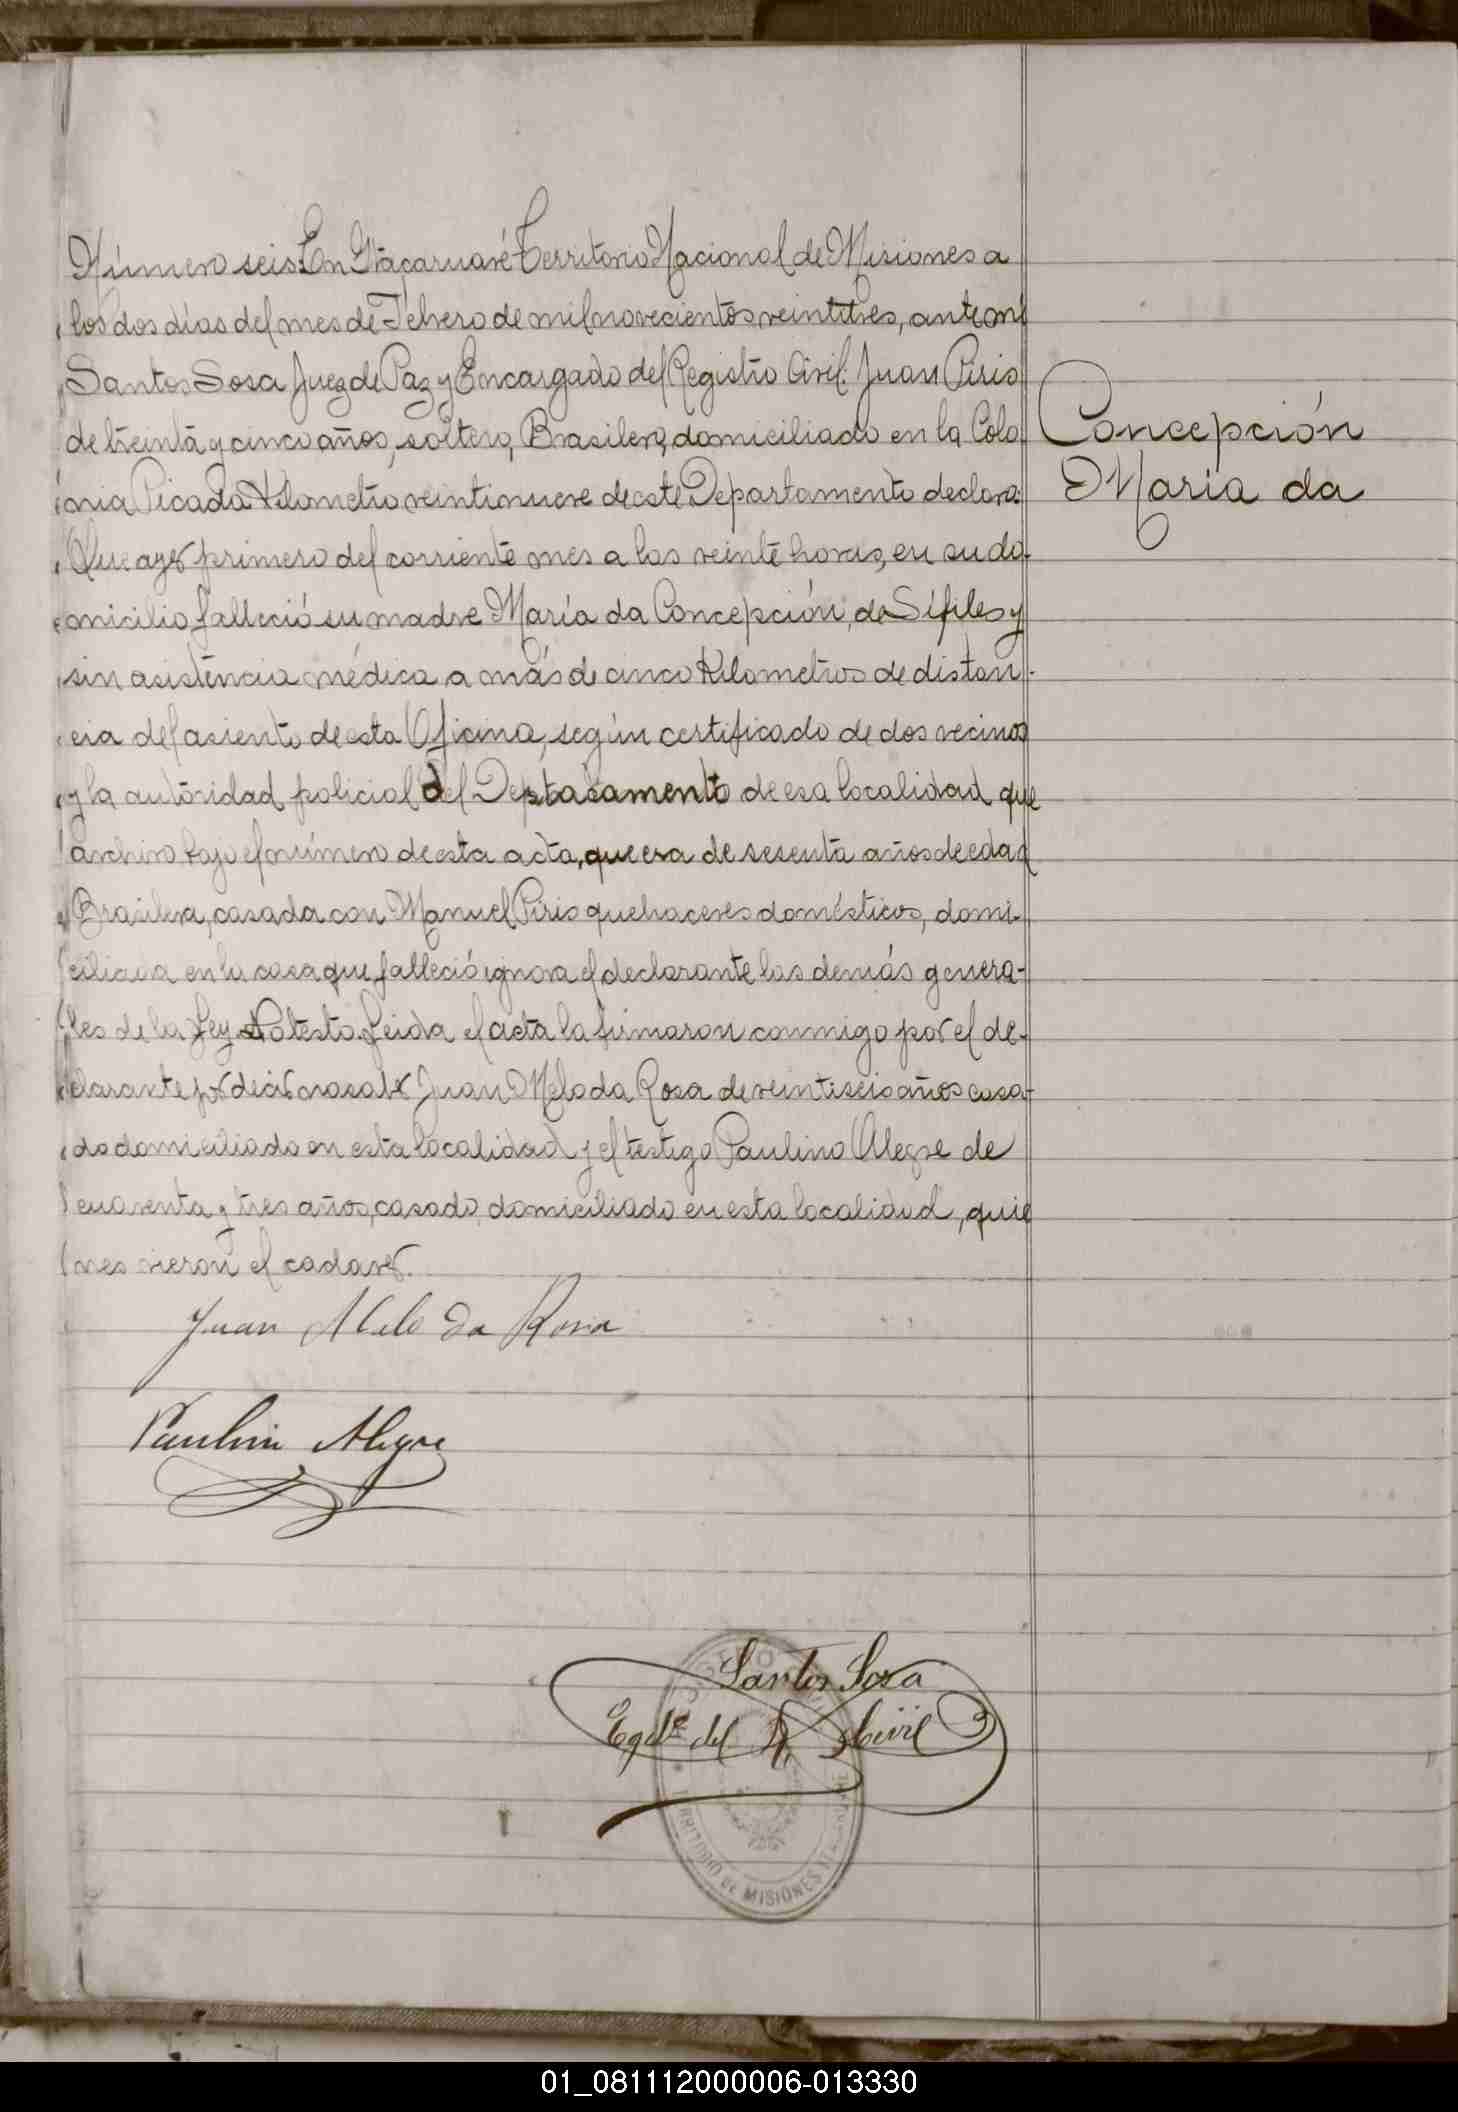 Número seis: En Itacaruaré Territorio Nacional de Misiones a
los dos días del mes de Febrero de mil novecientos veintitres, ante mi
Santos Sosa Juez de Paz y Encargado del Registro Civil: Juan Piris
de treinta y cinco años, soltero, Brasilero, domiciliado en la Colo
nia Picada Kilometro veintinueve de este Departamento declara:
Que ayer primero del corriente mes a las veinte horas, en su do-
micilio falleció su madre María da Concepción, de Sífiles y
sin asistencia médica a más de cinco Kilometros de distan-
cia del asiento de esta Oficina, según certificado de dos vecinos
y la autoridad policial del Destacamento de esa localidad que
archivo bajo el número de esta acta, que era de sesenta años de edad
Brasilera, casada con Manuel Piris quehaceres domésticos, domi-
ciliada en la casa que falleció ignora el declarante las demás genera-
les de la Ley No testo. Leida el acta la firmaron conmigo por el de-
clarante por decir no saber Juan Melo da Rosa de veintiseis años casa-
do domiciliado en esta localidad y el testigo Paulino Alegre de
cuarenta y tres años, casado, domiciliado en esta localidad, quie
nes vieron el cadaver.
Juan Melo da Rosa
Paulino Alegre
Santos Sosa
Egdo del R. Civil
TERRITORIO DE MISIONES
Concepción
María da
01_081112000006-013330